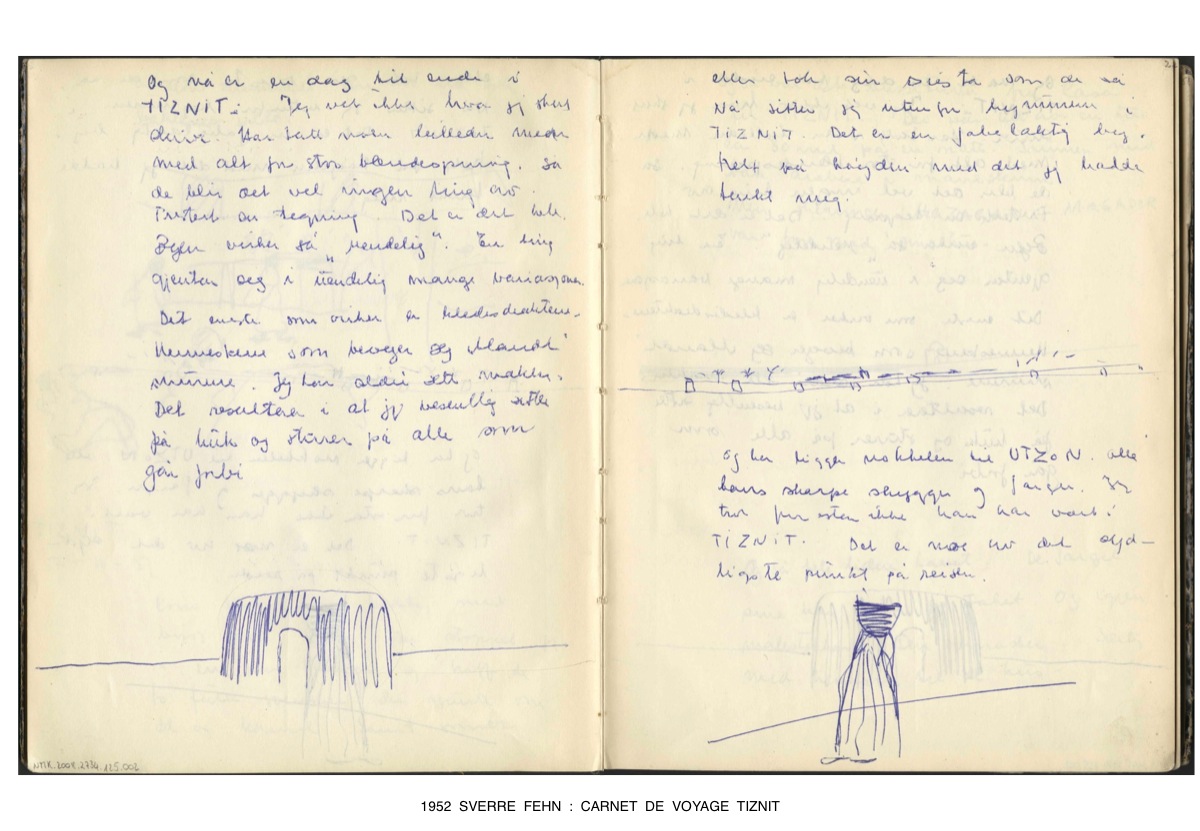 Og nå er en dag til ende i
TIZNIT. Jeg vet ikke hva jeg skal
skrive. Har tatt noen billeder men
med alt for stor blendeåpning. så
de blir det vel ingen ting av.
en tegning. Det er det hele.
Byen virker så "uendelig". En ting
gjentar seg i uendelig mange variasjoner.
Det eneste som virker er klesdraktene.
Menneskene som beveger seg blandt
murene. Jeg har aldri sett maken.
Det resulterer i at jeg vesentlig sitter
på huk og stirrer på alle som
går forbi
eller tok sin siesta som de sa
Nå sitter jeg utenfor bymuren i
TIZNIT Det er en fabelaktig by.
helt på høyden med det jeg hadde
tenkt meg.
og her ligger nøkkelen til UTZON. alle
hans skarpe skygger og farger. Jeg
tror forresten ikke han har vært i
TIZNIT. Det er nok det syd-
ligste punkt på reisen.
NMK.2008.0734.125.002
1952 SVERRE FEHN : CARNET DE VOYAGE TIZNIT